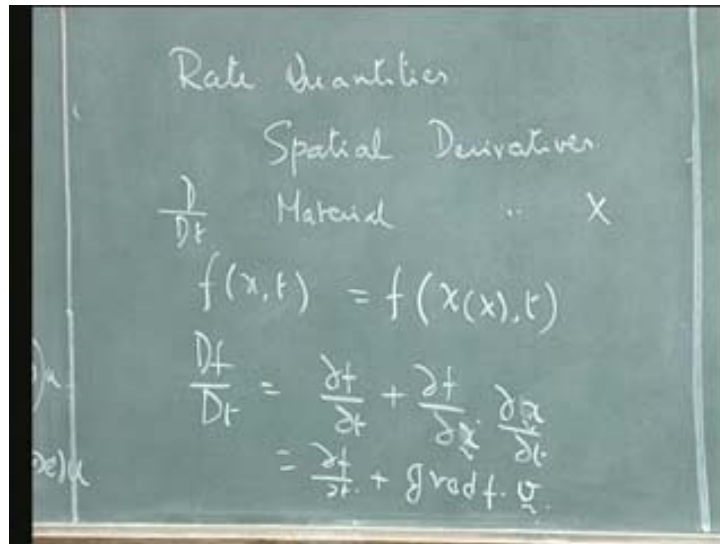 Rate Quantities
Spatial Derivatives
D/Dt Material " X
f(x,t) = f(χ(X),t)
Df/Dt = ∂f/∂t + ∂f/∂x ∂x/∂t
= ∂f/∂t + grad f · v
)u
)u